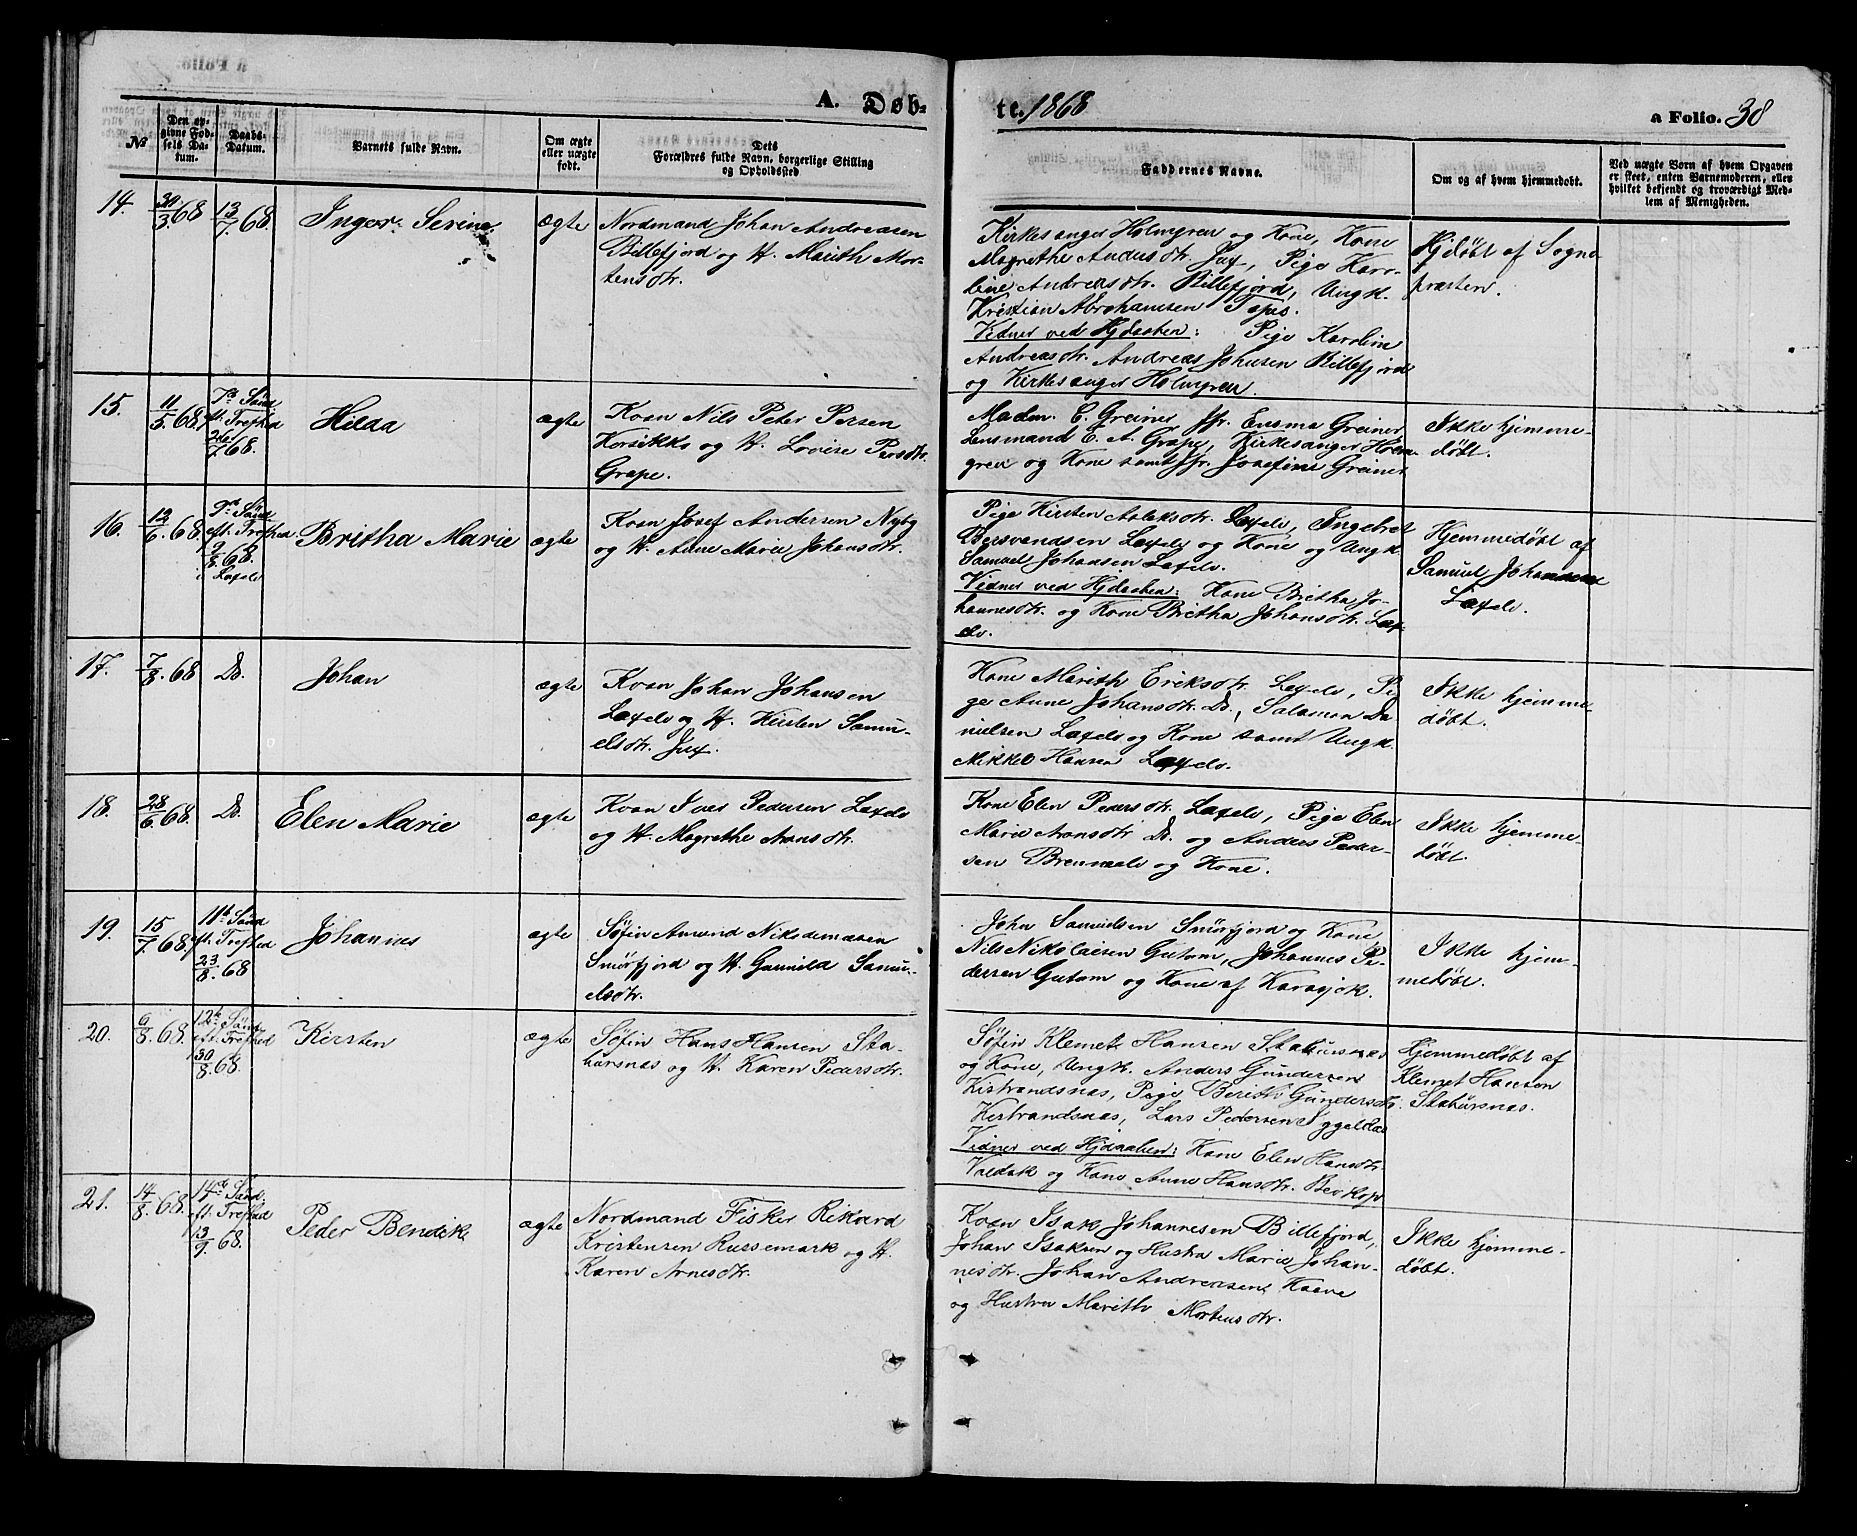 A. Døb-
te. 1868
a Folio. 38
No
Den op-
givne Fød-
sels Da-
tum.
Daabs-
Datum.
Barnets fulde Navn.
Om ægte
eller uægte
født.
Dets
Forældres fulde Navn, borgerlige Stilling
og Opholdssted
Faddernes Navne.
Om og af hvem hjemmedøbt.
Ved uægte Børn af hvem Opgaven
er skeet, enten Barnemoderen, eller
hvilket bekjendt og troværdigt Med-
lem af Menigheden.
14.
30/3 68
13/7 68.
Inger Serine
ægte
Nordmand Johan Andreasen
Billefjord og H. Marith Mor-
tensdtr.
Kirkesanger Holmgren og Kone, Kone
Magrethe Andersdtr. Jux, Pige Karo-
line Andreasdtr. Billefjord, Ungk.
Kristian Abrahamsen Topes.
Vidner ved Hjdaaben: Pige Karoline
Andreasdtr. Andreas Johnsen Billefjord
og Kirkesanger Holmgren.
Hjdøbt af Sogne-
præsten.
15.
11/5 68.
7de Sønd
eft. Trefhed
7 68.
Hilda
ægte
Kvan Nils Peter Persen
Korsikko og H. Lovise Persdtr.
Grape.
Madm. C. Greiner Jfr. Emma Greiner
Lensmand C. A. Grape, Kirkesanger Holm-
gren og Kone samt Jfr. Josefine Greiner
Ikke hjemme-
døbt.
16.
12/6 68
9de Sønd
eft. Trefhed
9/8 68.
i Laxelv
Britha Marie
ægte
Kvan Josef Andersen Nyby
og H. Anne Marie Johansdtr.
Pige Kirsten Aslaksdtr. Laxelv, Ingebret
Bersvendsen Laxelv og Kone og Ungk.
Samuel Johansen Laxelv.
Vidner ved Hjdaaben: Kone Britha Jo-
hannesdtr. og Kone Britha Johansdtr. Lax-
elv.
Hjemmedøbt af
Samuel Johansen
Laxelv.
17.
7/8 68
Do.
Johan
ægte
Kvan Johan Johansen
Laxelv og H. Kirsten Samu-
elsdtr. Jux.
Kone Marith Eriksdtr. Laxelv, Pi-
ge Anne Johansdtr. Do., Salamon Da-
nielsen Laxelv og Kone samt Ungk.
Mikkel Hansen Laxelv.
Ikke hjemme-
døbt.
18.
28/6 68
Do.
Elen Marie
ægte
Kvan Iver Pedersen Laxelv
og H. Magrethe Aronsdtr.
Kone Elen Pedersdtr. Laxelv, Pige Elen
Marie Aronsdtr. Do. og Anders Peder-
sen Brennelv og Kone.
Ikke hjemme-
døbt.
19.
15/7 68.
11te Sønd
eft. Trefhed
23/8 68
Johannes
ægte
Søfin Amund Nikodemæsen
Smørfjord og H. Gunnild Samu-
elsdtr.
John Samuelsen Smørfjord og Kone
Nils Nikolaisen Gutam, Johannes Pe-
dersen Gutam og Kone af Karasjok.
Ikke hjem-
medøbt.
20.
9/8 68.
12te Sønd
eft. Trefhed
30/8 68.
Kirsten
ægte
Søfin Hans Hansen Sta-
hursnæs og H. Karen Pedersdtr.
Søfin Klemet Hansen Stahursnæs
og Kone, Ungk. Anders Gundersen
Kistrandsnæs, Pige Berith Gundersdtr.
Kistrandsnæs, Lars Pedersen
Vidner ved Hjdaaben: Kone Elen Hansdtr.
Valdak og Kone Anne Hansdtr.
Hjemmedøbt af
Klemet Hansen
Stahursnæs.
21.
14/8 68.
14de Sønd.
eft. Trefhed
13/9 68.
Peder Bendik
ægte
Nordmand Fisker Rikard
Kristensen Russemark og H.
Karen Arnesdtr.
Kvan Isak Johannesen Billefjord,
Johan Isaksen og Hustru Marie Johan-
nesdtr. Johan Andreasen
og Hustru Marith Mortensdtr.
Ikke hjemme-
døbt.